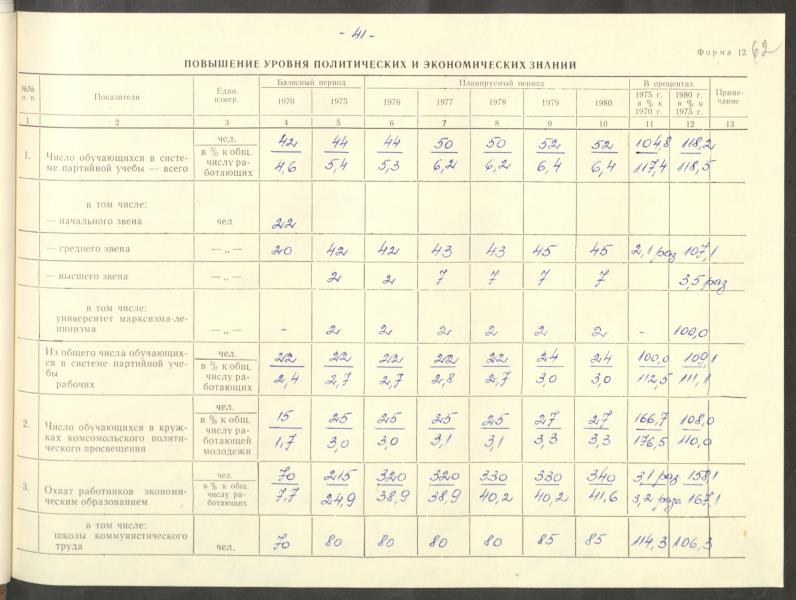 - 41 -
Форма 12
62
ПОВЫШЕНИЕ УРОВНЯ ПОЛИТИЧЕСКИХ И ЭКОНОМИЧЕСКИХ ЗНАНИЙ
№№ п. п. Показатели Един. измер. Базисный период Планируемый период В процентах Примечание
1970 1975 1976 1977 1978 1979 1980 1975 г. в % к 1970 г. 1980 г. в % к 1975 г.
1 2 3 4 5 6 7 8 9 10 11 12 13
чел. 42 44 44 50 50 52 52 104,8 118,2
1. Число обучающихся в систе-
ме партийной учебы — всего
в % к общ. числу работающих 4,6 5,4 5,3 6,2 6,2 6,4 6,4 117,4 118,5
в том числе:
— начального звена чел. 22
— среднего звена — „ — 20 42 42 43 43 45 45 2,1 раз 107,1
— высшего звена — „ — 2 2 7 7 7 7 3,5 раз
в том числе:
университет марксизма-ле-
нинизма — „ — - 2 2 2 2 2 2 - 100,0
Из общего числа обучающих-
ся в системе партийной уче-
бы
рабочих
чел. 22 22 22 22 22 24 24 100,0 109,1
в % к общ. числу ра-
ботающих 2,4 2,7 2,7 2,8 2,7 3,0 3,0 112,5 111,1
чел. 15 25 25 25 25 27 27 166,7 108,0
2. Число обучающихся в круж-
ках комсомольского полити-
ческого просвещения
в % к общ. числу ра-
ботающей
молодежи 1,7 3,0 3,0 3,1 3,1 3,3 3,3 176,5 110,0
чел. 70 215 320 320 330 330 340 3,1 раз 158,1
3. Охват работников экономи-
ческим образованием
в % к общ. числу ра-
ботающих 7,7 24,9 38,9 38,9 40,2 40,2 41,6 3,2 раза 167,1
в том числе:
школы коммунистического
труда чел. 70 80 80 80 80 85 85 114,3 106,3